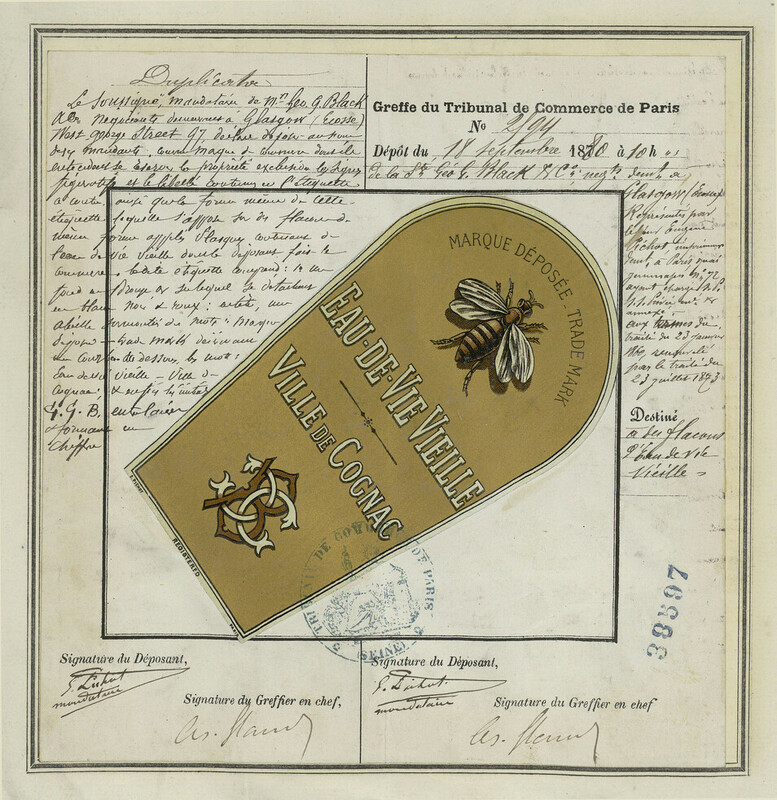 Duplicata
Le Soussigné, mandataire de Mrs Geo. G. Black
& Co Négociants demeurant à Glasgow (Ecosse)
West George Street 97, déclare déposer au nom
de ses mandants, comme marque de commerce dont ils
entendent se réserver la propriété exclusive, les signes
figuratifs et le libellé contenus en l'étiquette
ci-contre ainsi que la forme même de cette
étiquette laquelle s'appose sur des flacons de
même forme
eau de vie vieille dont les déposants font le
commerce. Ladite étiquette comprend: 
fond sur lequel se détachent
en blanc noir & roux:
abeille surmontée des mots: Marque
déposée - Trade mark
au dessous, les mots:
Eau de vie vieille - Ville de
Cognac; & enfin les initiales
G. G. B.
& formant un
chiffre
Greffe du Tribunal de Commerce de Paris
No 2,94
Dépôt du 18 Septembre 1880 à 10 h
de la Sté Geo G. Black & Co négts demt à
Glasgow (Ecosse)
Représentés par
le Sieur Eugène
Pichot, imprimeur
demt à Paris quai
Jemmapes No 72
ayant charge
annexé
aux termes du
traité du 23 janvier
1860 renouvelé
par le traité du
23 juillet 1873
Destiné
à des flacons
d'Eau de vie
Vieille
MARQUE DÉPOSÉE - TRADE MARK
EAU-DE-VIE VIEILLE
VILLE DE COGNAC
E. PICHOT
REGISTERED
TRIBUNAL DE COMMERCE DE PARIS
(SEINE)
38597
Signature du Déposant,
E. Pichot
mandataire
Signature du Greffier en chef,
Signature du Déposant,
E. Pichot
mandataire
Signature du Greffier en chef